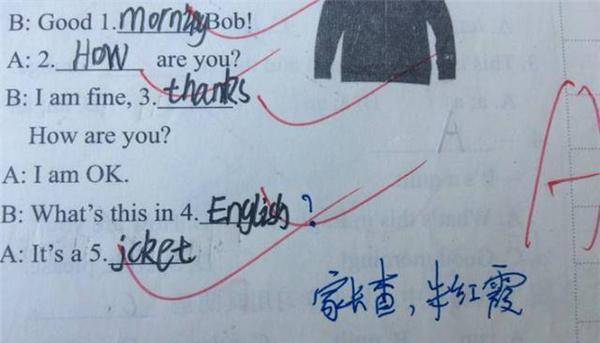 B: Good 1. mornzy Bob!
A: 2. HOW are you?
B: I am fine, 3. thanks
How are you?
A: I am OK.
B: What's this in 4. English ?
A: It's a 5. jcket
家长查，牛红霞
A